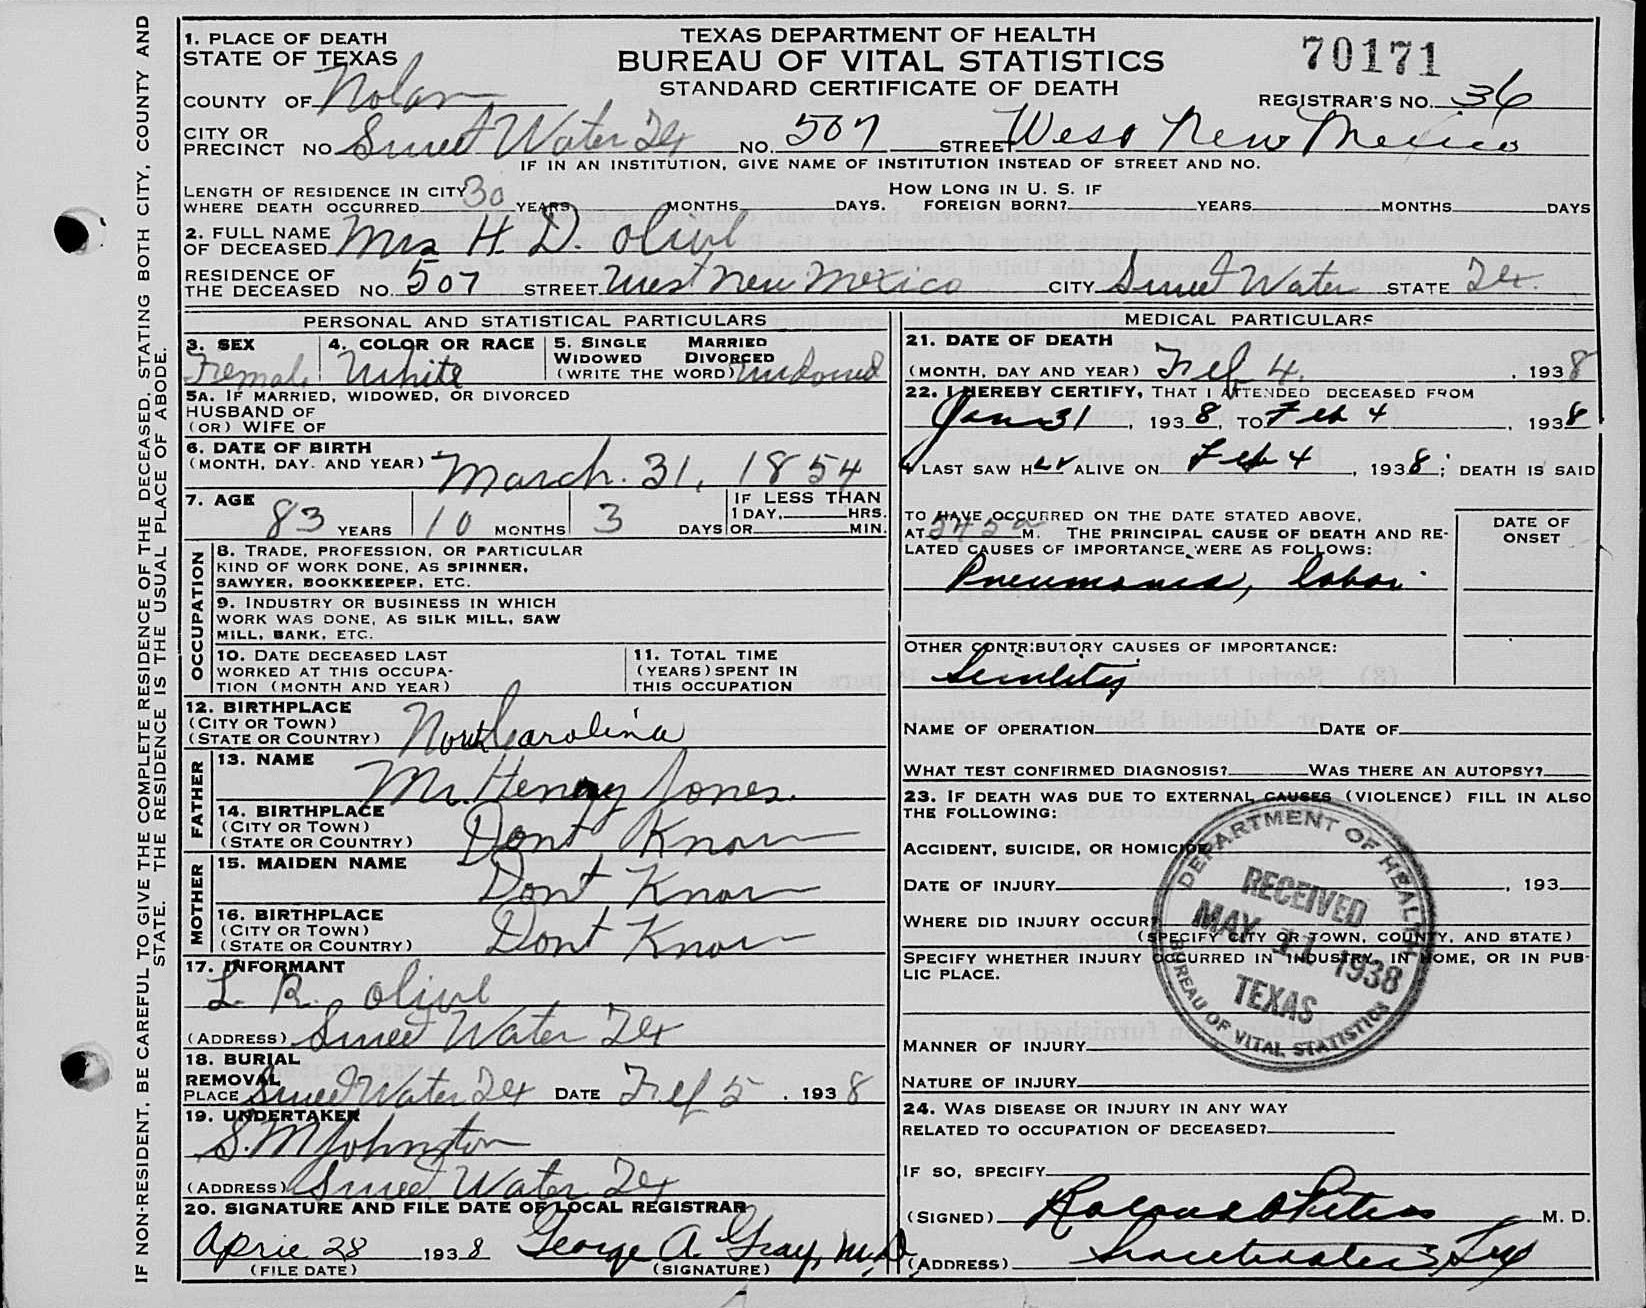 TEXAS DEPARTMENT OF HEALTH
BUREAU OF VITAL STATISTICS
STANDARD CERTIFICATE OF DEATH
70171
REGISTRAR'S NO. 36
1. PLACE OF DEATH
STATE OF TEXAS
COUNTY OF Nolan
CITY OR PRECINCT NO Sweet Water Tex NO. 507 STREET West New Mexico
IF IN AN INSTITUTION, GIVE NAME OF INSTITUTION INSTEAD OF STREET AND NO.
LENGTH OF RESIDENCE IN CITY WHERE DEATH OCCURRED 30 YEARS MONTHS DAYS. HOW LONG IN U. S. IF FOREIGN BORN? YEARS MONTHS DAYS
2. FULL NAME OF DECEASED Mrs H. D. Olive
RESIDENCE OF THE DECEASED NO. 507 STREET West New Mexico CITY Sweet Water STATE Tex.
PERSONAL AND STATISTICAL PARTICULARS
3. SEX Female
4. COLOR OR RACE White
5. SINGLE MARRIED WIDOWED DIVORCED (WRITE THE WORD) Widowed
5A. IF MARRIED, WIDOWED, OR DIVORCED
HUSBAND OF
(OR) WIFE OF
6. DATE OF BIRTH (MONTH, DAY. AND YEAR) March. 31, 1854
7. AGE 83 YEARS 10 MONTHS 3 DAYS IF LESS THAN 1 DAY, HRS. OR MIN.
OCCUPATION
8. TRADE, PROFESSION, OR PARTICULAR
KIND OF WORK DONE, AS SPINNER,
SAWYER, BOOKKEEPER, ETC.
9. INDUSTRY OR BUSINESS IN WHICH
WORK WAS DONE, AS SILK MILL, SAW
MILL, BANK, ETC.
10. DATE DECEASED LAST
WORKED AT THIS OCCUPA-
TION (MONTH AND YEAR)
11. TOTAL TIME
(YEARS) SPENT IN
THIS OCCUPATION
12. BIRTHPLACE
(CITY OR TOWN)
(STATE OR COUNTRY) North Carolina
FATHER
13. NAME Mr. Henry Jones.
14. BIRTHPLACE
(CITY OR TOWN)
(STATE OR COUNTRY) Dont Know
MOTHER
15. MAIDEN NAME Dont Know
16. BIRTHPLACE
(CITY OR TOWN)
(STATE OR COUNTRY) Dont Know
17. INFORMANT
L. R. Olive
(ADDRESS) Sweet Water Tex
18. BURIAL
REMOVAL
PLACE Sweet Water Tex DATE Feb 5, 1938
19. UNDERTAKER
S. M Johnston
(ADDRESS) Sweet Water Tex
20. SIGNATURE AND FILE DATE OF LOCAL REGISTRAR
April 28 1938 George A. Gray, M.D.
(FILE DATE) (SIGNATURE)
MEDICAL PARTICULARS
21. DATE OF DEATH
(MONTH, DAY AND YEAR) Feb 4. , 1938
22. I HEREBY CERTIFY, THAT I ATTENDED DECEASED FROM
Jan 31, 1938, TO Feb 4, 1938
I LAST SAW HER ALIVE ON Feb 4, 1938; DEATH IS SAID
TO HAVE OCCURRED ON THE DATE STATED ABOVE,
AT 545 a M. THE PRINCIPAL CAUSE OF DEATH AND RE-
LATED CAUSES OF IMPORTANCE WERE AS FOLLOWS:
DATE OF ONSET
Pneumonia, lobar
OTHER CONTRIBUTORY CAUSES OF IMPORTANCE:
NAME OF OPERATION DATE OF
WHAT TEST CONFIRMED DIAGNOSIS? WAS THERE AN AUTOPSY?
23. IF DEATH WAS DUE TO EXTERNAL CAUSES (VIOLENCE) FILL IN ALSO
THE FOLLOWING:
ACCIDENT, SUICIDE, OR HOMICIDE
DATE OF INJURY , 193
WHERE DID INJURY OCCUR?
(SPECIFY CITY OR TOWN, COUNTY, AND STATE)
SPECIFY WHETHER INJURY OCCURRED IN INDUSTRY, IN HOME, OR IN PUB-
LIC PLACE.
MANNER OF INJURY
NATURE OF INJURY
24. WAS DISEASE OR INJURY IN ANY WAY
RELATED TO OCCUPATION OF DECEASED?
IF SO, SPECIFY
(SIGNED) M. D.
(ADDRESS) Sweetwater, Tex
DEPARTMENT OF HEALTH
RECEIVED
MAY 11 1938
TEXAS
BUREAU OF VITAL STATISTICS
IF NON-RESIDENT, BE CAREFUL TO GIVE THE COMPLETE RESIDENCE OF THE DECEASED, STATING BOTH CITY, COUNTY AND
STATE. THE RESIDENCE IS THE USUAL PLACE OF ABODE.